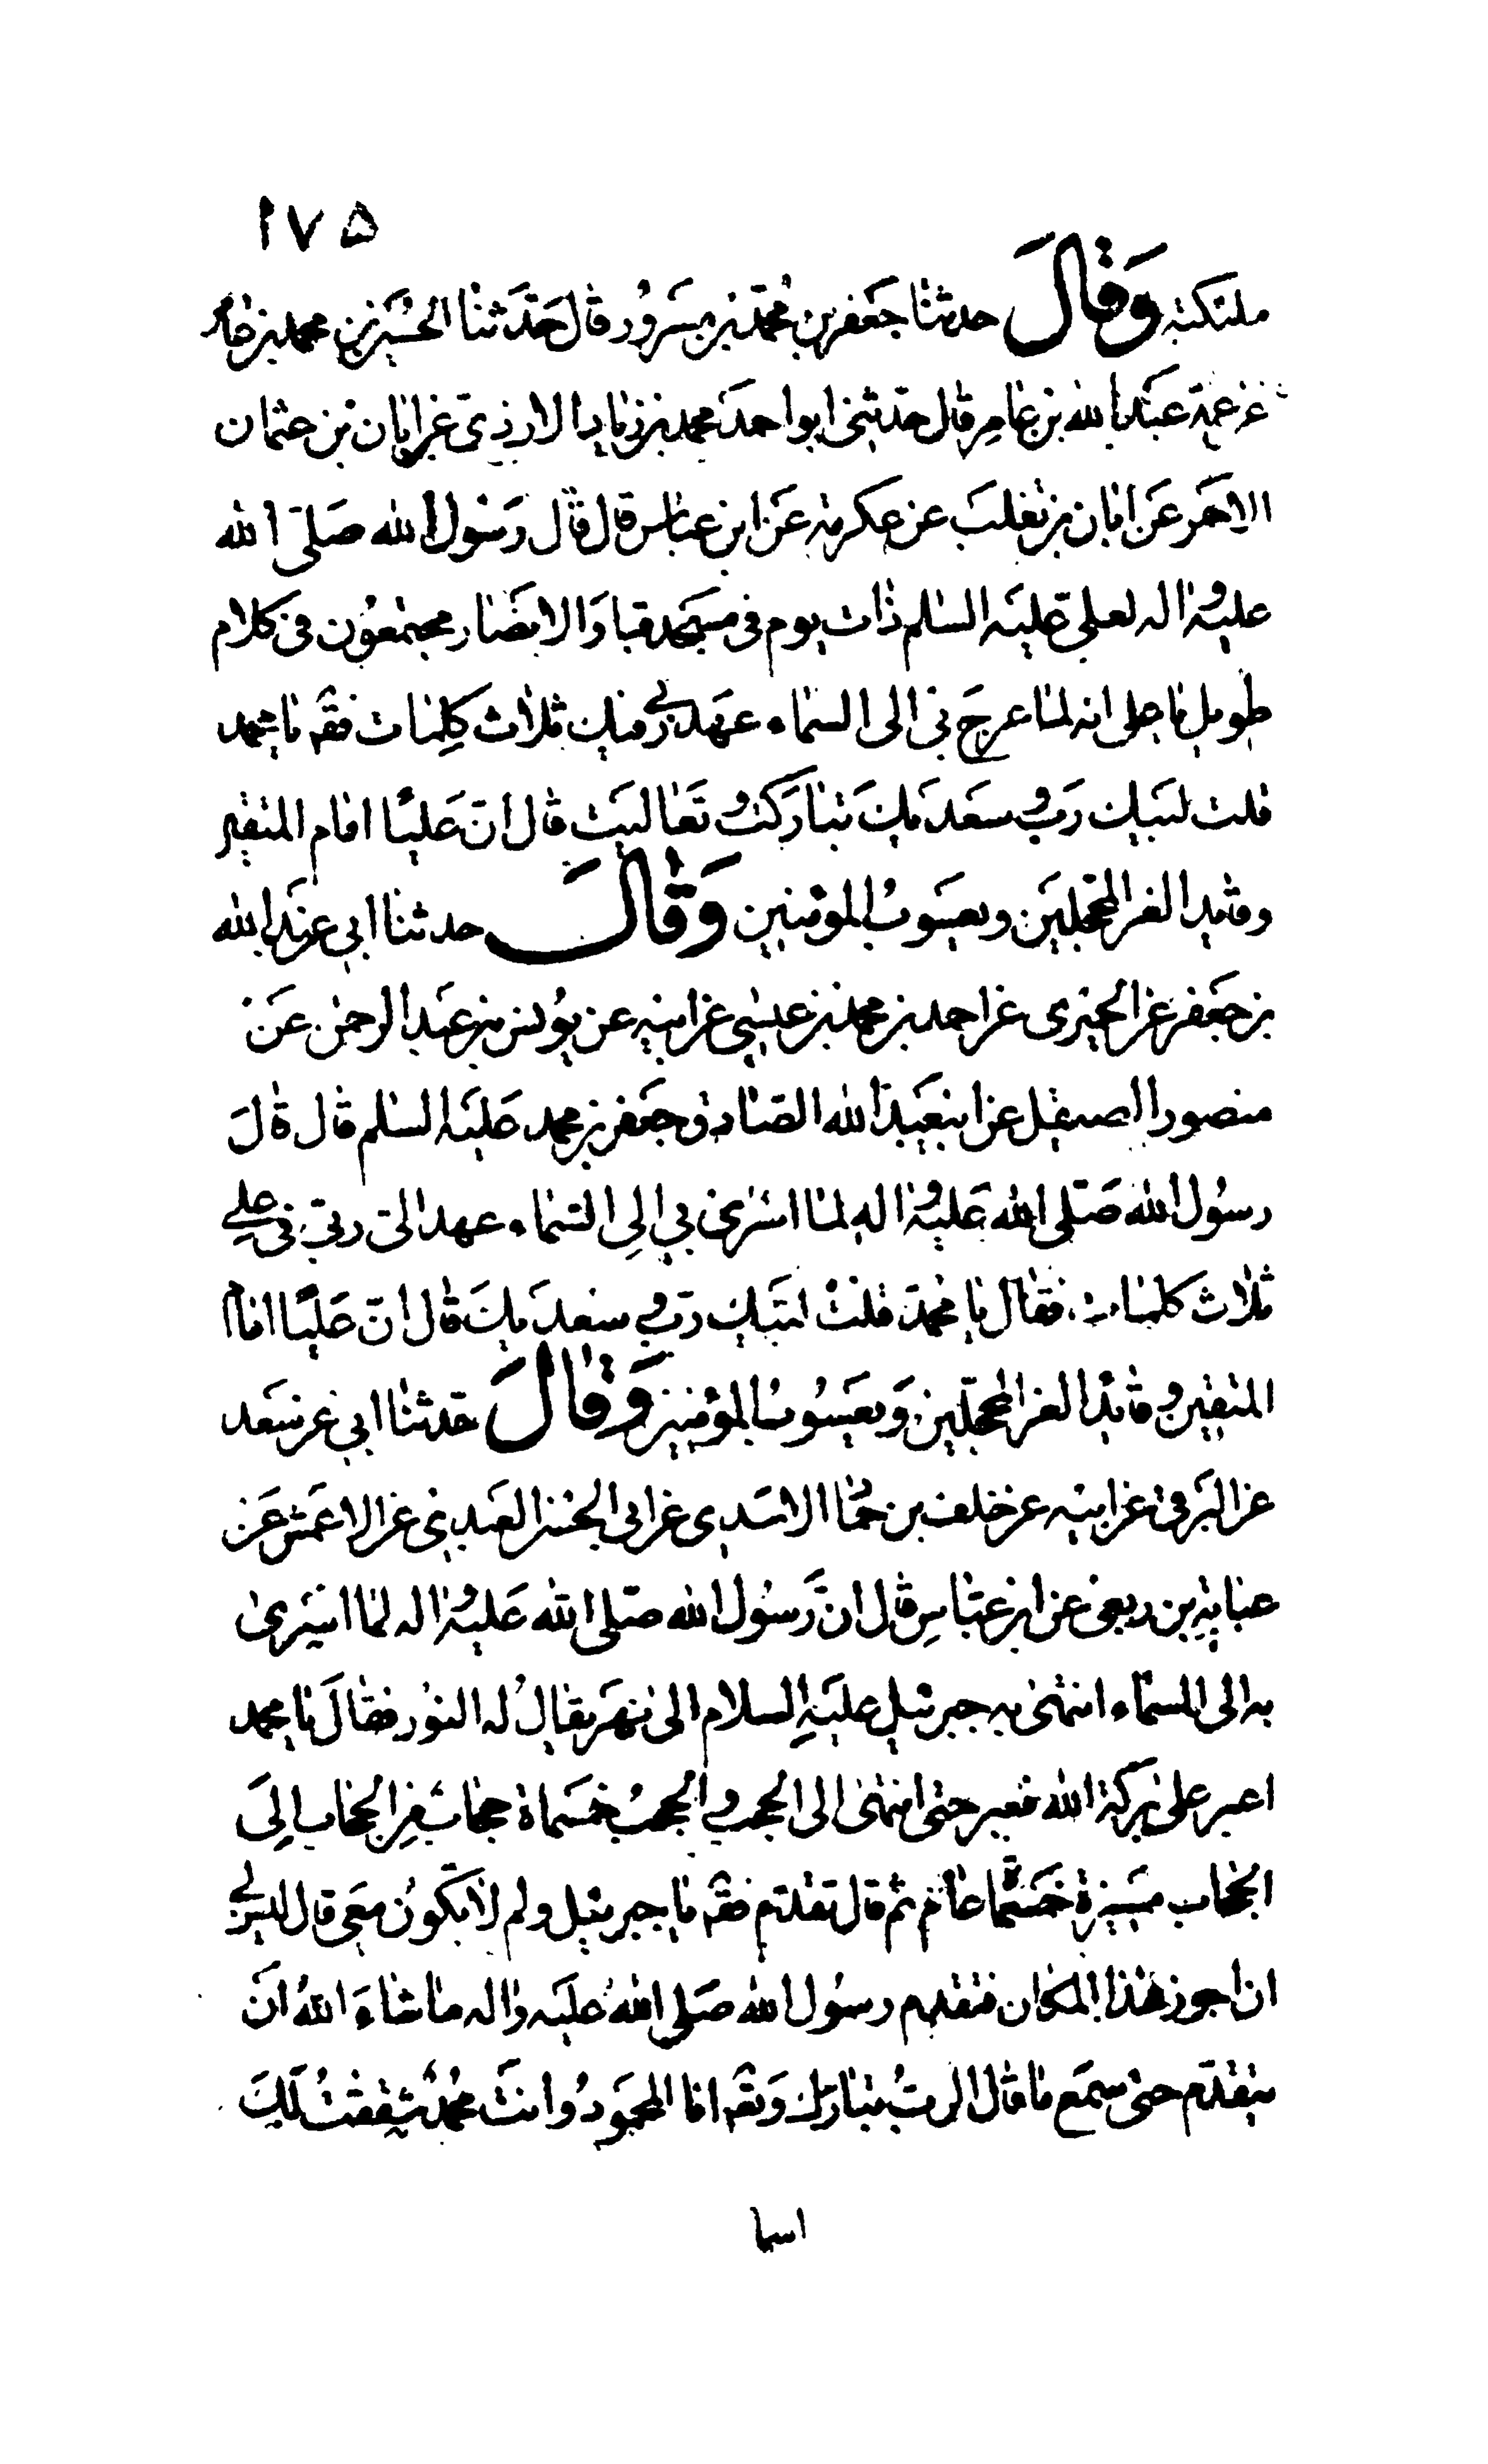 ١٧۵
ملئكته وَقالَ حدثنا جَعفر بن محمّد بن مسَرور قال حَدّثنا الحسَين بن محمد بن عامر
عن عمّه عبَد الله بن عامِر قال حدّثنی ابو احمدَ محمد بن زياد الازدیّ عن ابان بن عثمان
الاحمَر عَن ابان بن تغلبَ عن عكرمه عَن ابن عباس قال قال رَسُول الله صَلیّ الله
عليه واله لعلی عليَه السّلم ذات يوم فی مسجَد قبا وَالانصَار مجتمعُون فی كلام
طويل يا علی انه لما عرجَ بی الی السّماء عهَد ربی فيك ثلاث كلِمات فقه يا محمد
قلت لبَيك رَب وسعَدَيك تباركت وتعَاليَت قال انّ عَليًا امام المتقين
وقايد الغر المحجّليَن ويعسَوبُ المؤمنين وَقالَ حدثنا ابی عن عبَد الله
بن جعَفر عن الحميری عن احمد بن محمد بن عيسٰی عن ابيه عن يُونس بن عبَد الرحمن عَن
منصور الصيقل عن ابی عَبَد الله الصّادق جعَفر بن محمد عَليَه السّلم قال قالَ
رسُول الله صَلّی الله عَليه واله لما اسُریَ بی الِی السّماء عهد الیّ ربّی فی علی
ثلاث كلمات فقال يا محُمدّ قلتُ لبّيك ربّ وسعدَيكَ قال انّ عَليًا امام
المتقين وقايدُ الغر المحجّلين وَيعسُوبُ المؤمنين وَقالَ حَدثنا ابی عن سَعَد
عن البَرقی عن ابيه عن خلف بن حمّا الاسَدی عن ابی الحسَن العَبدی عن الاعمَش عَن
عبايهِ بن ربعی عن ابن عبّاسِ قال انّ رَسُول الله صلّی الله عَليه واله لما اسُری
به الی السمّاء انتهیٰ به جبرئيل عليَهِ السلام الی نهَر يقالُ له النوُر فقالَ يا محمد
اعبر علی بَركة الله فعبر حتی انتهیٰ الی الحجب والحجبُ خمسَماة حجاب مَن الحجَاب الِیَ
الحجَاب مَسيرَة خمسَماٰ عام ثم قال تقدّم فقه يا جبرئيل ولم لا تكُونُ مَعی قال ليس لی
ان اجوز هذا المكان فتقدم رسُول الله صَلّی اللهُ عليَه واله ما شاءَ اللهُ انَ
يتقدّم حتی سمَع ما قال الربُ تبارك وَتعه انا المحمَودُ وانتَ محُمّد شققتُ لكَ
اسما